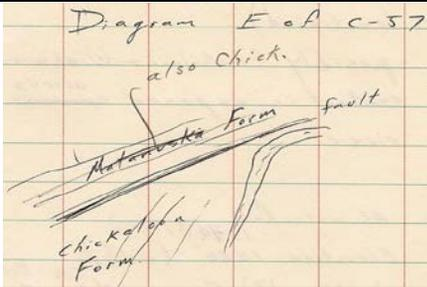 Diagram E of C-57
also Chick.
Matanuska Form
fault
Chickaloon
Form.